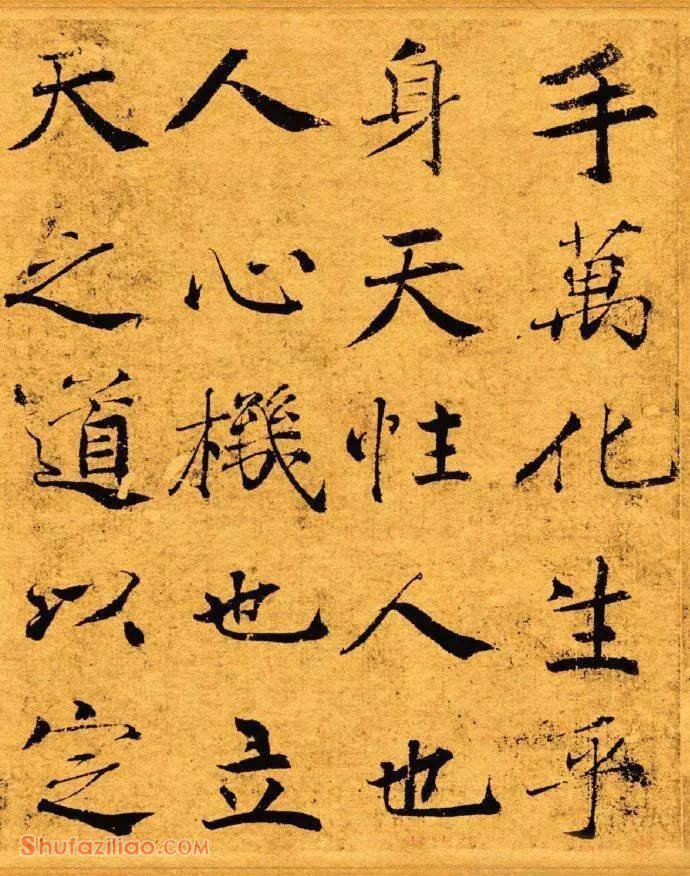 手萬化生乎
身天性人也
人心機也立
天之道以定
Shufaziliao.COM